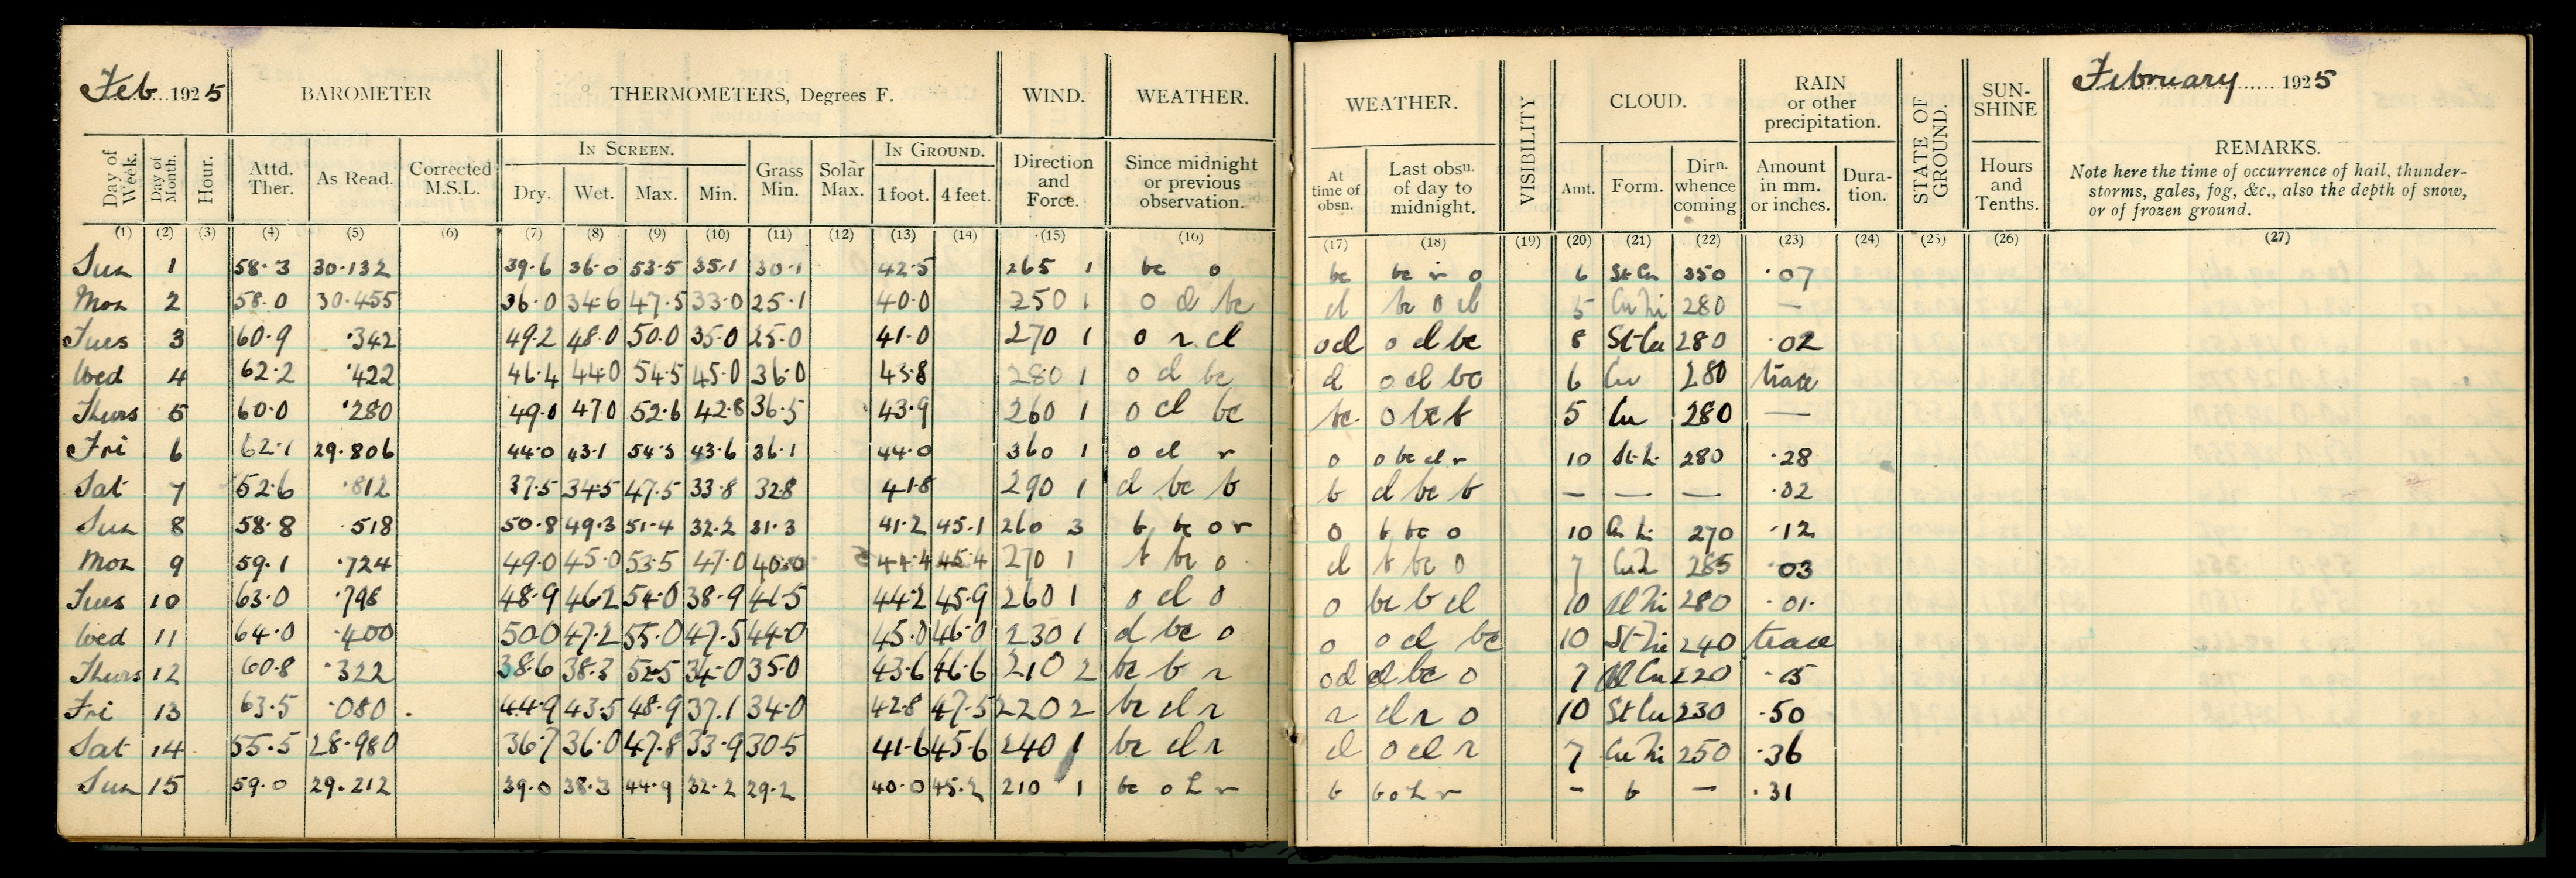 Feb 1925 BAROMETER THERMOMETERS, Degrees F. WIND. WEATHER.
Day of Week. Day of Month. Hour. Attd. Ther. As Read. Corrected M.S.L. IN SCREEN. Dry. Wet. Max. Min. Grass Min. Solar Max. IN GROUND. 1 foot. 4 feet. Direction and Force. Since midnight or previous observation.
(1) (2) (3) (4) (5) (6) (7) (8) (9) (10) (11) (12) (13) (14) (15) (16)
Sun 1 58.3 30.132 39.6 36.0 53.5 35.1 30.1 42.5 265 1 bc o
Mon 2 58.0 30.455 36.0 34.6 47.5 33.0 25.1 40.0 250 1 o d bc
Tues 3 60.9 .342 49.2 48.0 50.0 35.0 25.0 41.0 270 1 o r d
Wed 4 62.2 .422 46.4 44.0 54.5 45.0 36.0 43.8 280 1 o d bc
Thurs 5 60.0 .280 49.0 47.0 52.6 42.8 36.5 43.9 260 1 o d bc
Fri 6 62.1 29.806 44.0 43.1 54.3 43.6 36.1 44.0 360 1 o d r
Sat 7 52.6 .812 37.5 34.5 47.5 33.8 32.8 41.8 290 1 d bc b
Sun 8 58.8 .518 50.8 49.3 51.4 32.2 31.3 41.2 45.1 260 3 b bc o r
Mon 9 59.1 .724 49.0 45.0 53.5 47.0 40.0 44.4 45.4 270 1 b bc o
Tues 10 63.0 .798 48.9 46.2 54.0 38.9 41.5 44.2 45.9 260 1 o d o
Wed 11 64.0 .400 50.0 47.2 55.0 47.5 44.0 45.0 46.0 230 1 d bc o
Thurs 12 60.8 .322 38.6 38.3 52.5 34.0 35.0 43.6 46.6 210 2 bc b r
Fri 13 63.5 .080 44.9 43.5 48.9 37.1 34.0 42.8 47.5 220 2 bc d r
Sat 14 55.5 28.980 36.7 36.0 47.8 33.9 30.5 41.6 45.6 240 1 bc d r
Sun 15 59.0 29.212 39.0 38.3 44.9 32.2 29.2 40.0 45.2 210 1 bc o h r
WEATHER. VISIBILITY CLOUD. RAIN or other precipitation. STATE OF GROUND. SUN-SHINE February 1925
At time of obsn. Last obsn. of day to midnight. Amt. Form. Dirn. whence coming Amount in mm. or inches. Duration. Hours and Tenths. REMARKS.
Note here the time of occurrence of hail, thunder-
storms, gales, fog, &c., also the depth of snow,
or of frozen ground.
(17) (18) (19) (20) (21) (22) (23) (24) (25) (26) (27)
bc bc r o 6 St Cu 350 .07
d bc o d 5 Cu Ni 280 —
od o d bc 8 St-Cu 280 .02
d o d bc 6 Cu 280 trace
bc o bc b 5 Cu 280 —
o o bc d r 10 St-Ni 280 .28
b d bc b — — — .02
o b bc o 10 Cu Ni 270 .12
d b bc o 7 Cu Ni 285 .03
o bc b d 10 Ni 280 .01
o o d bc 10 St-Ni 240 trace
od d bc o 7 Cu 220 .15
r d r o 10 St Cu 230 .50
d o d r 7 Cu Ni 250 .36
b b o h r – b — .31